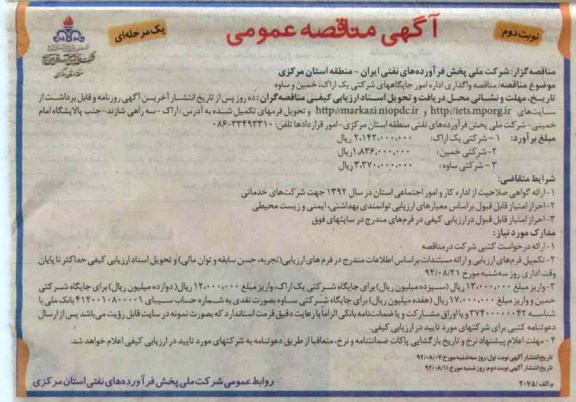 آگهی مناقصه عمومی
نوبت دوم
یک مرحله‌ای
مناقصه‌گزار: شرکت ملی پخش فرآورده‌های نفتی ایران - منطقه استان مرکزی
موضوع مناقصه: مناقصه واگذاری اداره امور جایگاههای شرکتی یک اراک، خمین و ساوه
تاریخ، مهلت و نشانی محل دریافت و تحویل اسناد ارزیابی کیفی مناقصه‌گران: ده روز پس از تاریخ انتشار آخرین آگهی روزنامه و قابل برداشت از
سایت‌های http://iets.mporg.ir و http://markazi.niopdc.ir و تحویل فرمهای تکمیل شده به آدرس: اراک - سه راهی شازند- جنب پالایشگاه امام
خمینی- شرکت ملی پخش فرآورده‌های نفتی منطقه استان مرکزی- امور قراردادها تلفن: ۳۳۴۹۳۳۱۰-۰۸۶
مبلغ برآورد: ۱- شرکتی یک اراک: ۲،۱۴۲،۰۰۰،۰۰۰ ریال
۲- شرکتی خمین: ۱،۸۳۶،۰۰۰،۰۰۰ ریال
۳- شرکتی ساوه: ۳،۳۷۰،۰۰۰،۰۰۰ ریال
شرایط متقاضی:
۱- ارائه گواهی صلاحیت از اداره کار و امور اجتماعی استان در سال ۱۳۹۲ جهت شرکت‌های خدماتی
۲- احراز امتیاز قابل قبول براساس معیارهای ارزیابی توانمندی بهداشتی، ایمنی و زیست محیطی
۳- احراز امتیاز قابل قبول در ارزیابی کیفی در فرم‌های مندرج در سایتهای فوق
مدارک مورد نیاز:
۱- ارائه درخواست کتبی شرکت در مناقصه
۲- تکمیل فرم‌های ارزیابی و ارائه مستندات براساس اطلاعات مندرج در فرم های ارزیابی (تجربه، حسن سابقه و توان مالی) و تحویل اسناد ارزیابی کیفی حداکثر تا پایان
وقت اداری روز سه‌شنبه مورخ ۹۲/۰۸/۲۱
۳- واریز مبلغ ۱۳،۰۰۰،۰۰۰ ریال (سیزده میلیون ریال) برای جایگاه شرکتی یک اراک، واریز مبلغ ۱۲،۰۰۰،۰۰۰ ریال (دوازده میلیون ریال) برای جایگاه شرکتی
خمین و واریز مبلغ ۱۷،۰۰۰،۰۰۰ ریال (هفده میلیون ریال) برای جایگاه شرکتی ساوه بصورت نقدی به شماره حساب سیبای ۴۱۲۰۰۱۰۸۰۰۰۱ بانک ملی با
شناسه ۳۷۴۰۰۰۰۰۴۲ و یا اوراق مشارکت و یا ضمانتنامه بانکی الزاماً با رعایت دقیق فرمت استاندارد که بصورت نمونه در سایت قابل رؤیت می‌باشد پس از ارسال
دعوتنامه کتبی برای شرکتهای مورد تایید در ارزیابی کیفی.
۴- مهلت اعلام پیشنهاد نرخ و تاریخ بازگشایی پاکات ضمانتنامه و نرخ، متعاقبا از طریق دعوتنامه به شرکتهای مورد تایید در ارزیابی کیفی اعلام خواهد شد.
تاریخ انتشار آگهی نوبت اول: روز سه‌شنبه مورخ ۹۲/۰۸/۰۷
تاریخ انتشار آگهی نوبت دوم: روز شنبه مورخ ۹۲/۰۸/۱۱
م الف/ ۲۰۷۵
روابط عمومی شرکت ملی پخش فرآورده‌های نفتی استان مرکزی